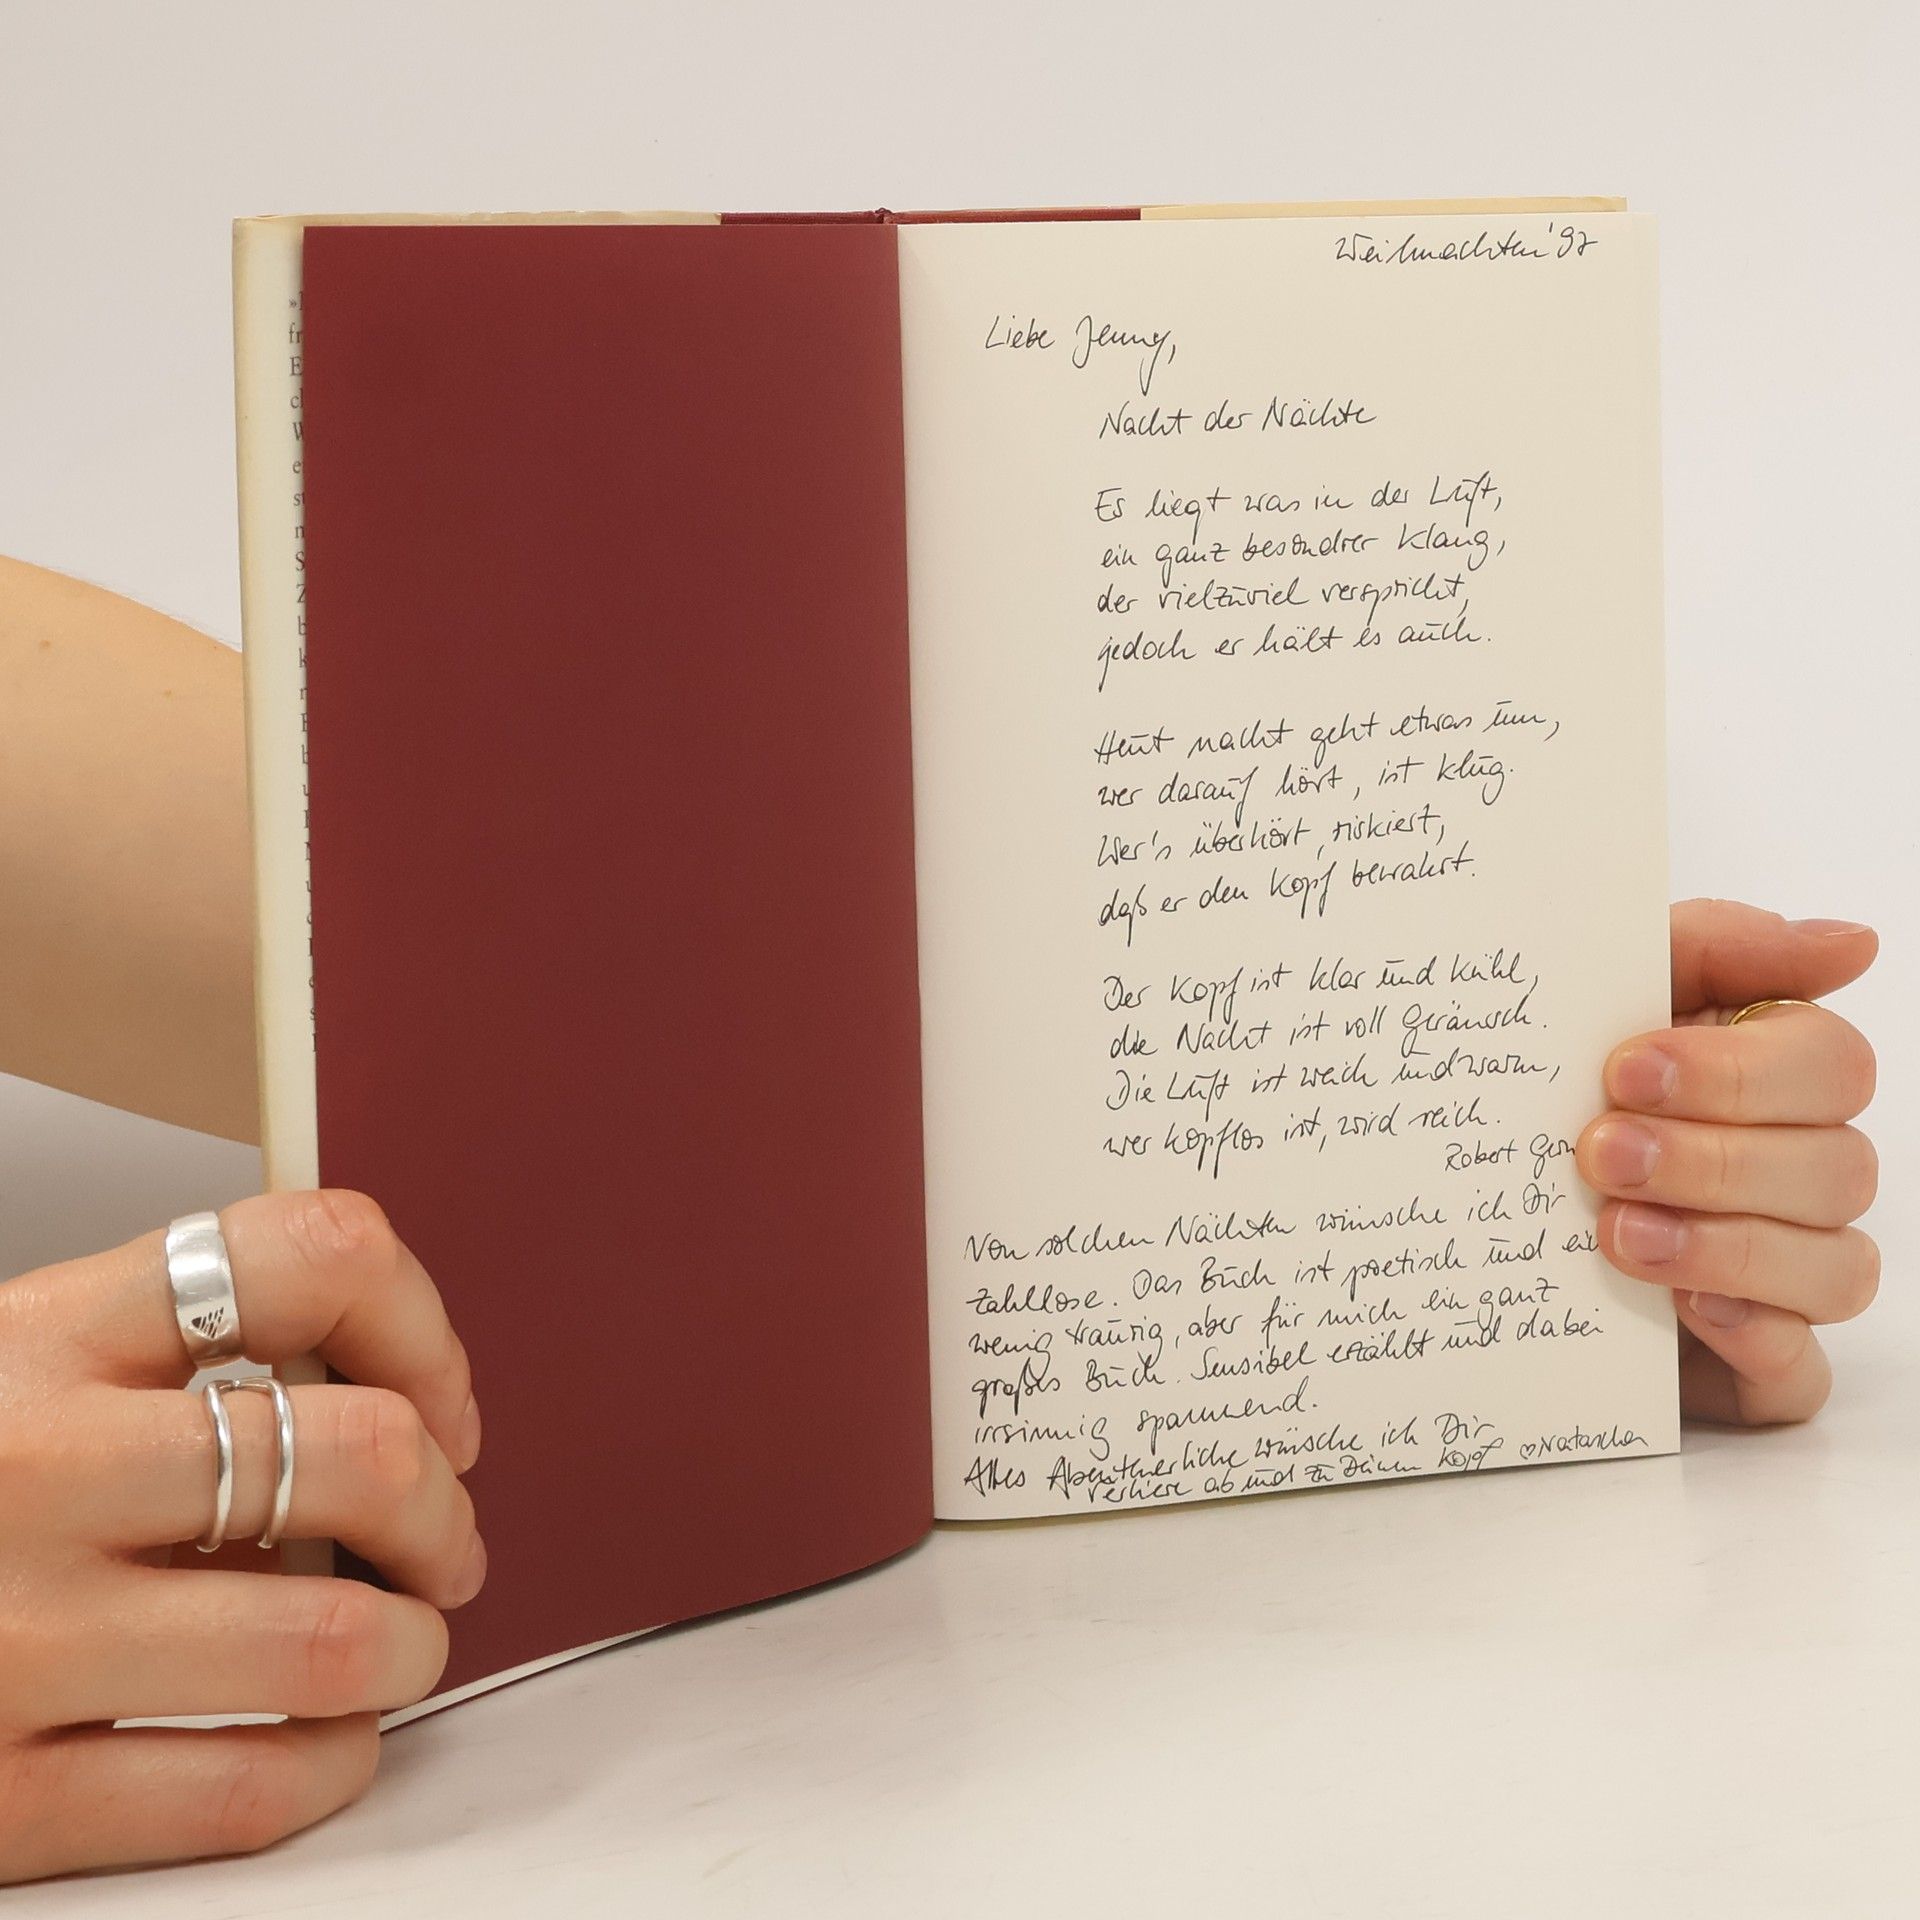 Weihnachten '97
Liebe Jenny,
Nacht der Nächte
Es liegt was in der Luft,
ein ganz besondrer Klang,
der vielzuviel verspricht,
jedoch er hält es auch.
Heut nacht geht etwas um,
wer darauf hört, ist klug.
Wer's überhört, riskiert,
daß er den Kopf bewahrt.
Der Kopf ist klar und kühl,
die Nacht ist voll Geräusch.
Die Luft ist weich und warm,
wer kopflos ist, wird reich.
Robert Gern
Von solchen Nächten wünsche ich Dir
zahllose. Das Buch ist poetisch und ein
wenig traurig, aber für mich ein ganz
großes Buch. Sensibel erzählt und dabei
irrsinnig spannend.
Alles Abenteuerliche wünsche ich Dir
verliere ab und zu Deinen Kopf ♡ Natascha